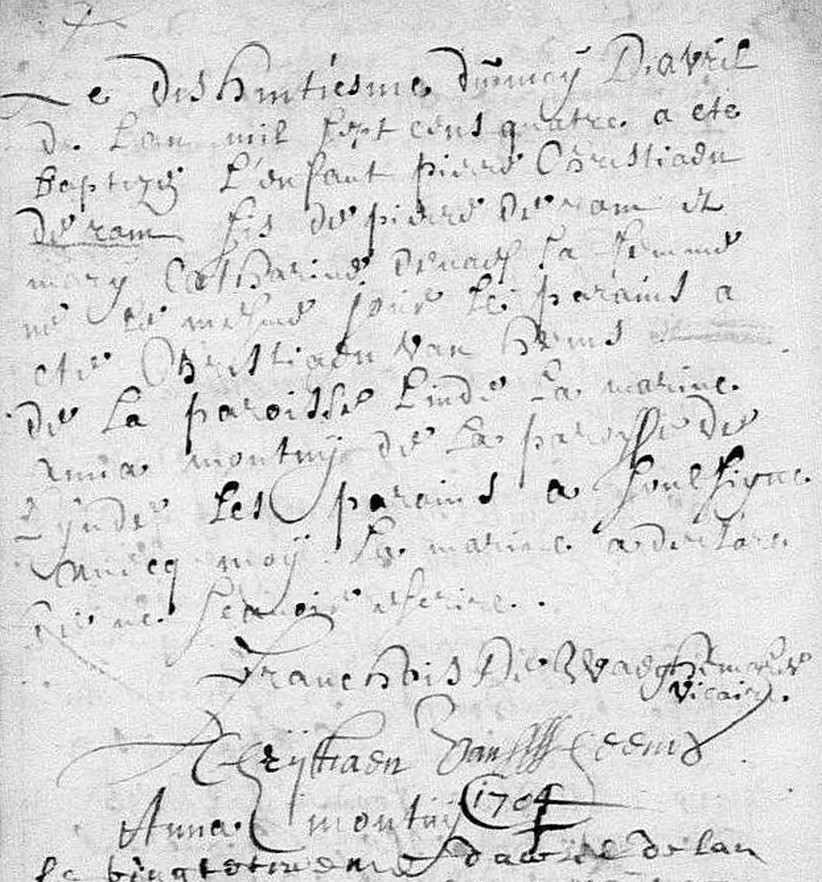 Le dishuitiesme du moy D'avril
de Lan mil sept cens quatre a ete
Baptize L'enfant pierre Christiaen
de ram fis de pierre de ram et
mary Catharine sa femme
ne le mesme jour le parains a
ete Christiaen van hems
de La paroisse Linde La marine
anna montuy de La paroisse de
Linde Les parains a soulsigne
avecq moy La marine a declare
de ne scavoir escrire.
Franchois De Waeghemaker
vicaire.
Chrijstiaen van heems
Anna montuy 1704
le de lan